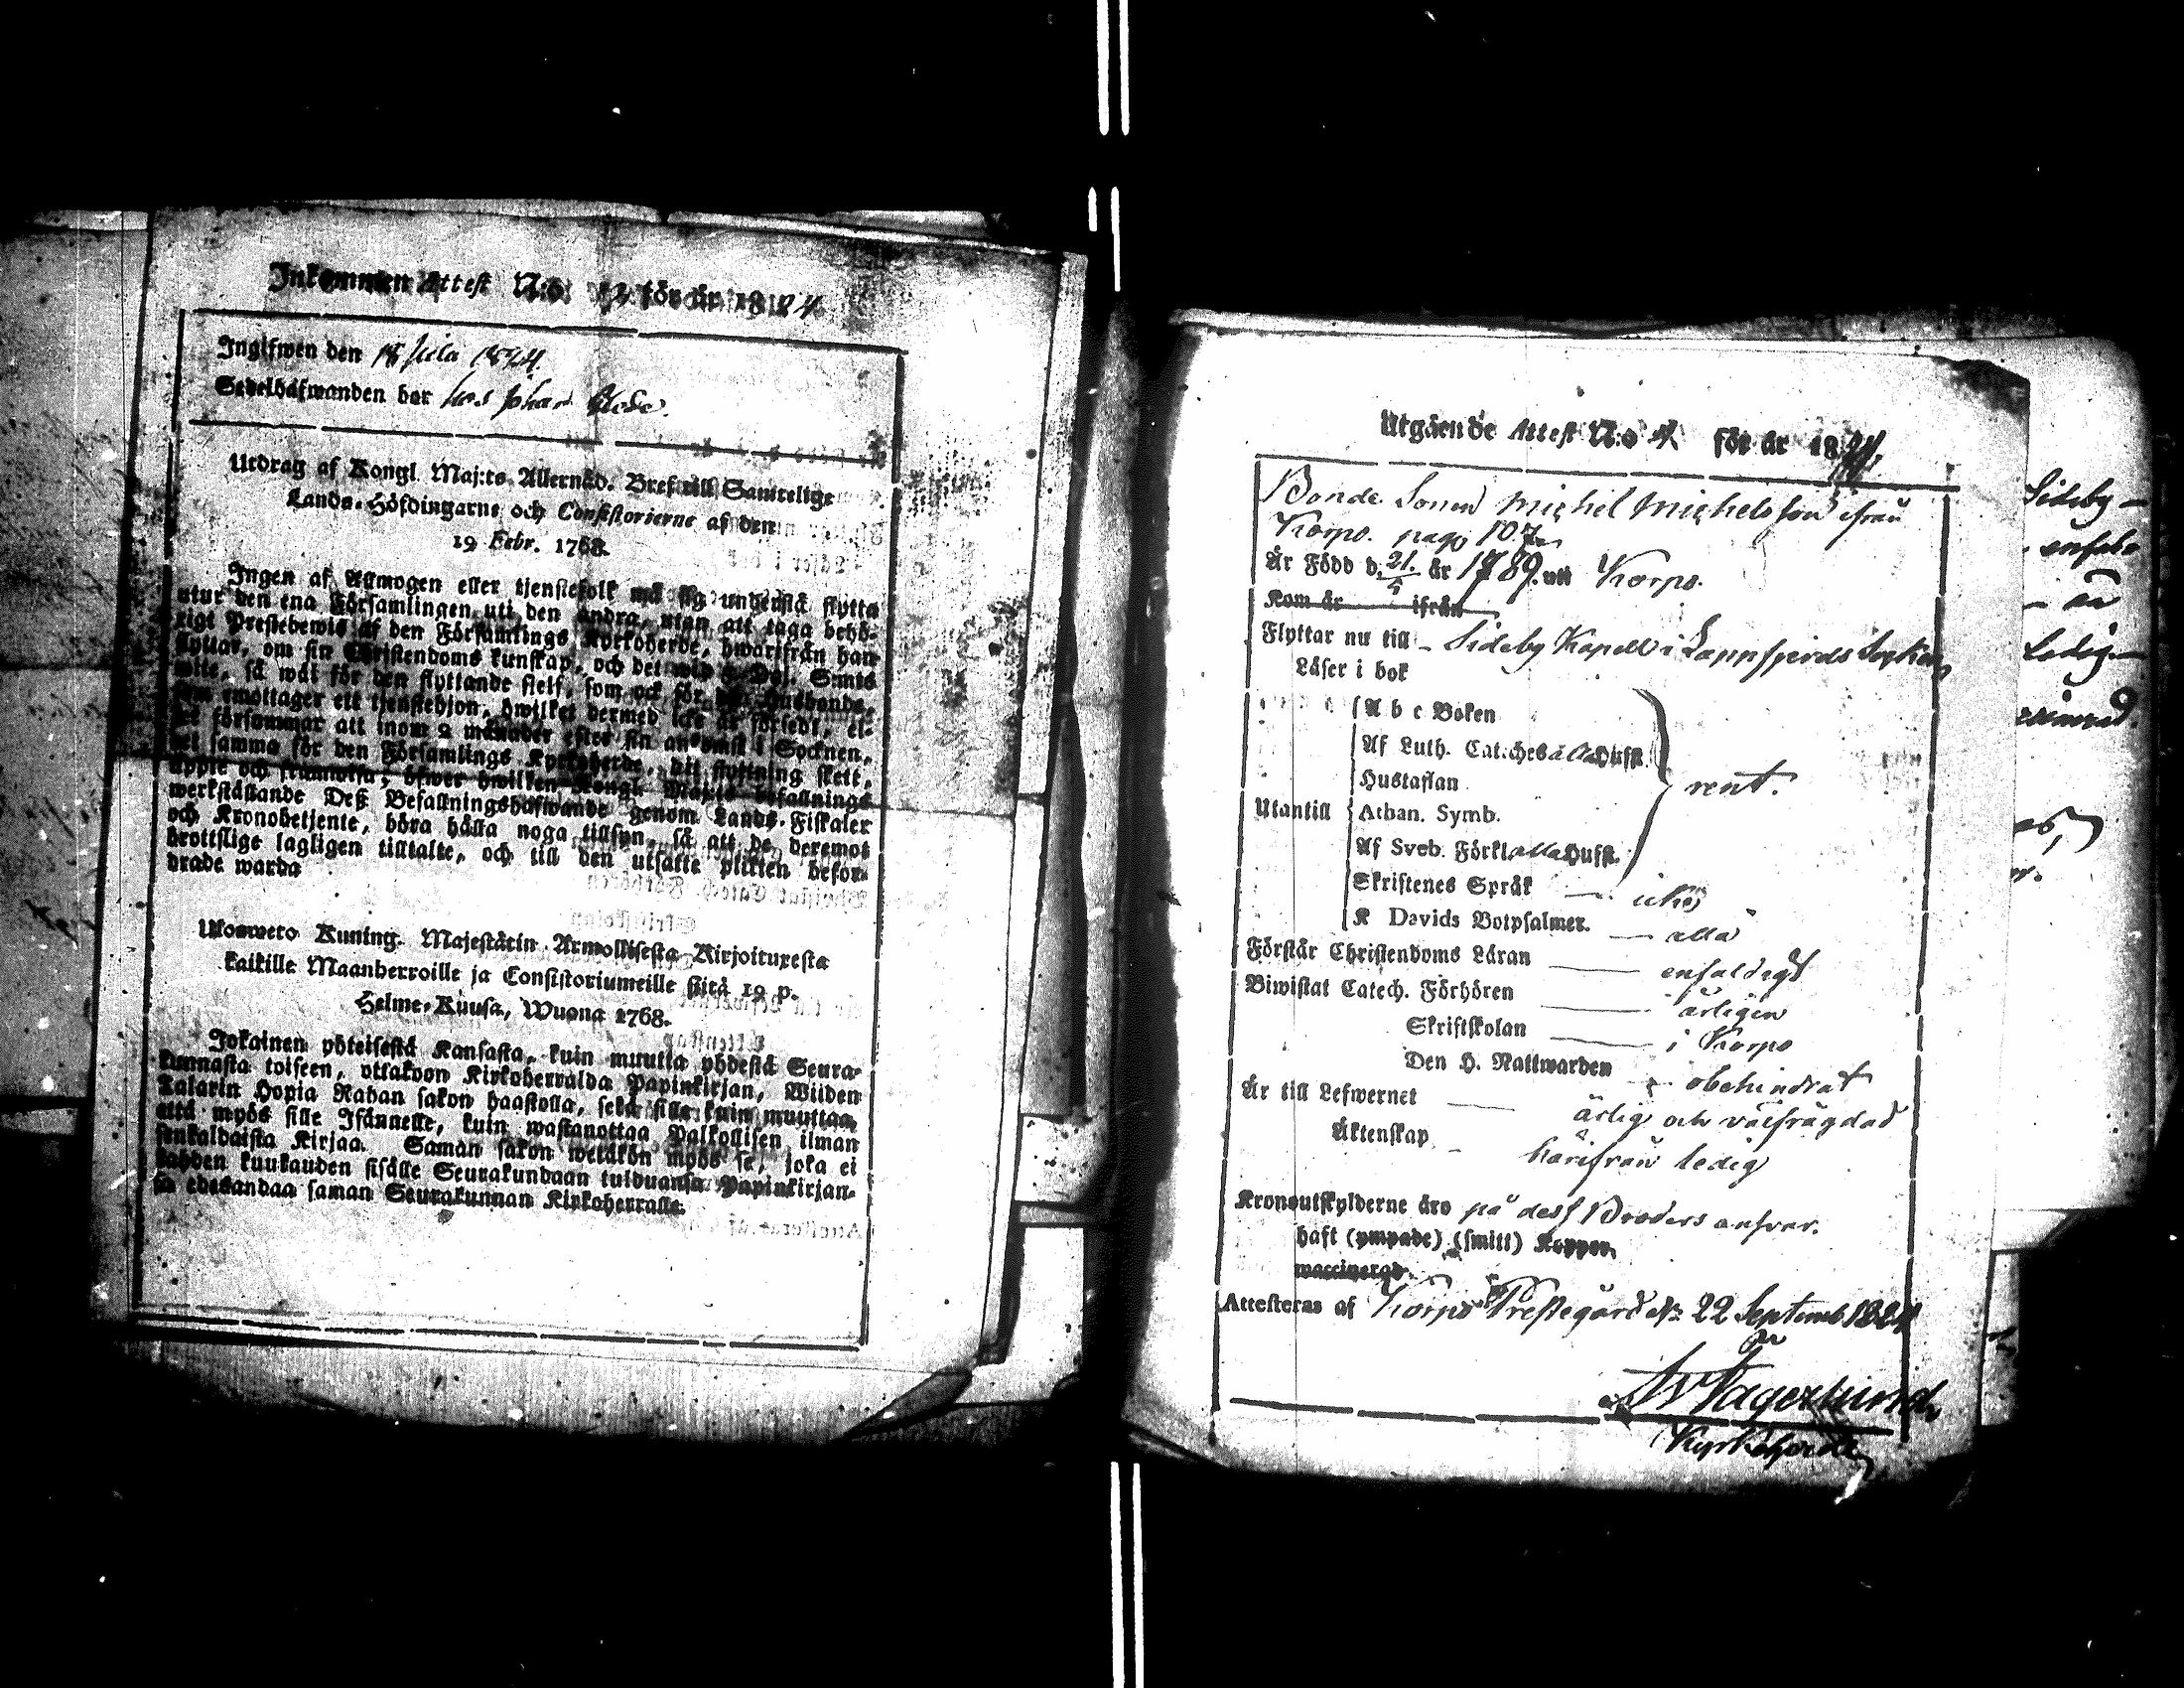 Inkommen Attest N:o 12 för år 1824
Ingifwen den 18 1824.
Sedelhafwanden bor hos Johan
Utdrag af Kongl. Maj:ts Allernåd. Bref till Samtelige
Lands-Höfdingarne och Consistorierne af den
19 Febr. 1768.
Ingen af Allmogen eller tjenstefolk må sig understå flytta
utur den ena Församlingen uti den andra, utan att taga behö-
rigt Prestebewis af den Församlings Kyrkoherde, hwarifrån han
flyttar, om sin Christendoms kunskap, och det wid 5 Dal. S:mts
wite, så wäl för den flyttande sielf, som ock för den Husbonde,
som emottager ett tjenstehjon, hwilket dermed icke är försedt, el-
ler försummar att inom 2 månader efter sin ankomst i Socknen,
det samma för den Församlings Kyrkoherde, dit flyttning skett,
uppte och framwisa; öfwer hwilken Kongl. Maj:ts befallnings
werkställande Deß Befallningshafwande genom Lands-Fiskaler
och Kronobetjente, böra hålla noga tillsyn, så att de deremot
brottslige lagligen tilltalte, och till den utsatte plikten befor-
drade warda
Ulosweto Kuning. Majestätin Armollisesta Kirjoituxesta
kaikille Maanherroille ja Consistoriumeille siitä 19 p.
Helme-Kuusa, Wuona 1768.
Jokainen yhteisestä Kansasta, kuin muutta yhdestä Seura-
kunnasta toiseen, ottakoon Kirkoherralda Papinkirjan, Wiiden
Talarin Hopia Rahan sakon haastolla, sekä sille kuin muuttaa,
että myös sille Isännelle, kuin wastanottaa Palkollisen ilman
senkaldaista Kirjaa. Saman sakon wetäkön myös se, joka ei
kahden kuukauden sisälle Seurakundaan tulduansa Papinkirjan-
sa edesandaa saman Seurakunnan Kirkoherralle.
Utgående Attest N:o 4 för år 1824.
Bonde Sonen Michel Michelsson ifrån
Korpo. pag. 107
Är Född d. 21/5 år 1789. uti Korpo.
Kom år ifrån
Flyttar nu till Sideby Kapell i Lappfjerds Socken
Läser i bok
A b c Boken
Af Luth. Catches alla Hufst.
Hustaflan
rent.
Utantill
Athan. Symb.
Af Sveb. Förkl alla Hufst.
Skriftenes Språk icke
K Davids Botpsalmer. alla
Förstår Christendoms Läran enfaldigt
Biwistat Catech. Förhören årligen
Skriftskolan i Korpo
Den H. Nattwarden obehindrat
Är till Lefwernet ärlig och välfrägdad
Äktenskap härifrån ledig
Kronoutskylderne äro på dess Broders ansvar.
haft (ympade) (smitt) Koppor.
waccinerad.
Attesteras af Korpo Prestegård d. 22 Septemb 1824
Fagerlund
Kyrkoherde
Sideby
Ledig